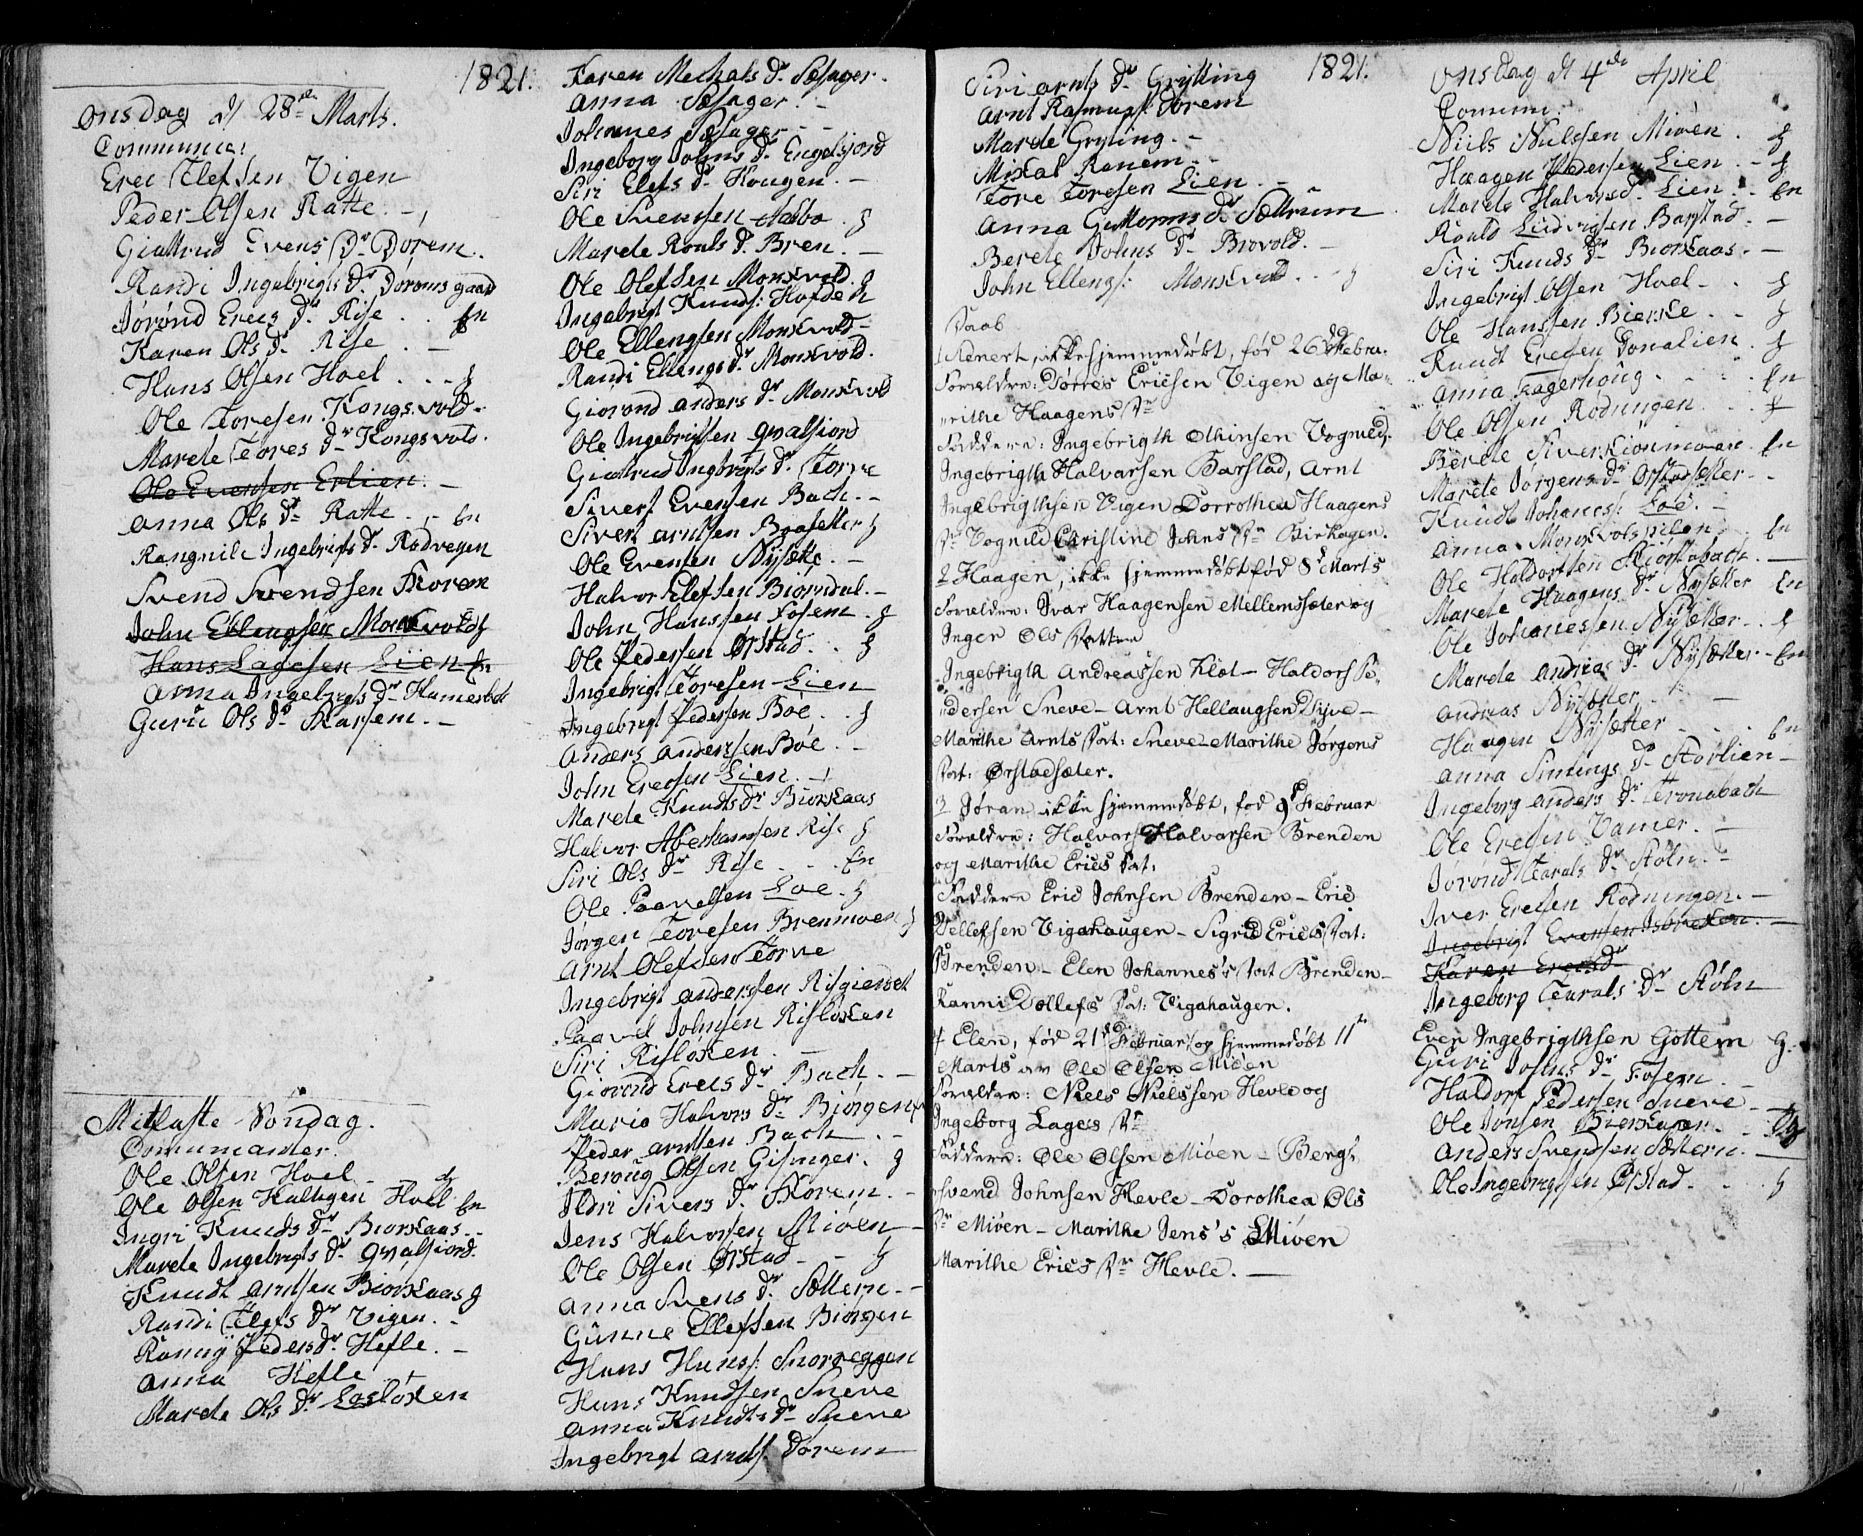 1821.
Onsdag d 28de Marts.
Communica:
Erec Elefsen Vigen
Peder Olsen Ratte. -
Giertrud Evens Dr Dorem.
Randi Ingebrigts Dr Dorems gaard
Jørønd Erecs Dr Rise . . En
Karen Ols Dr Rise . -
Hans Olsen Hoel . . . g
Ole Toresen Kongsvold.
Marete Tores Dr Kongsvold.
Ole Evensen Erlien. -
Anna Ols Dr Ratte . - En
Rangnile Ingebrigts Dr Rodvegen
Svend Svendsen Skorem
John Ellengsen Monsvold g
Hans Lagesen Lien En
Anna Ingebrigts Dr
Guru Ols Dr Skarsem. -
Mitfaste Søndag.
Communicanter.
Ole Olsen Hoel -
Ole Olsen Hoel En
Ingri Knuds Dr Biørkaas -
Marete Ingebrigts Dr Qvalfiord.
Knudt Arntsen Biørkaas g
Randi Elefs Dr Vigen. -
Ranny Peders Dr Hefle. -
Anna Hefle -
Marete Ols Dr Losløken
Karen Mechals Dr Sæsager.
Anna Sæsager. -
Johannes Sæsager -
Ingeborg Johns Dr Engelfjord
Siri Elefs Dr Kougen. -
Ole Svensen Aabbo . g
Marete Roals Dr Bren. -
Ole Olefsen Monsvold. g
Ingebrigt Knuds: Hofde
Ole Ellengsen Monsvold -
Randi Ellengs Dr Monsvold.
Giørønd Anders Dr Monsvold
Ole Ingebrigtsen Qvalfiord
Giertrud Ingebrigts Dr Torve
Sivert Evensen Bach. -
Sivert Arntsen Brosetter g
Ole Evensen Nysætr. -
Halvor Elefsen Biørndal. -
John Hanssen Fosem . g
Ole Pedersen Ørstad. . g
Ingebrigt Toresen Lien
Ingebrigt Pedersen Bøe . . g
Anders Anderssen Bøe . -
John Erecsen Lien . -
Marete Knudts Dr Biørkaas
Halvor Aberhamsen Rise g
Siri Ols Dr Rise . . . En
Ole Paavelsen Loe . g
Jørgen Toresen Brenmoen g
Arnt Olefsen Torve
Ingebrigt Andersen Risgierdet
Paavel Johnsen Risløken
Siri Risløken. -
Giørønd Erecs Dr Bach. -
Maria Halvors Dr Biørgen
Peder Arntsen Bach . -
Beroug Olsen Gisinger. g
Ildri Sivers Dr Skorem. -
Jens Halvorsen Miøen -
Ole Olsen Ørstad - g
Anna Svens Dr Sættern. -
Gunne Ellefsen Biørgen
Hans Hans: Snoreggen
Hans Knudsen Sneve
Anna Knudts Dr Sneve
Ingebrigt Arnts: Dorem
1821.
Siri Arnts Dr Grytting
Arnt Rasmuss: Dorem
Marete Gryting. -
Mikal Ranem. -
Tore Toresen Lien. -
Anna Guttorms Dr Sættrum
Berete Johns Dr Brovold. -
John Ellengs: Monsvold . . g
Daab
1 Renert, ikke hjemmedøbt, fød 26de Febru.
Forældre: Dørres Ericsen Vigen og Ma-
rithe Haagens Dr
Faddere: Ingebrigth Othinsen Vognild,
Ingebrigth Halvarsen Barstad, Arnt
Ingebrigthsen Vigen Dorrothea Haagens
Dr Vognild Christine Johns Dr Birkagen.
2 Haagen, ikke hjemmedøbt fød 8de Marts
Forældre: Ivar Haagensen Mellemsæter og
Inger Ols Datter
Ingebrigth Andreassen Klæt - Haldorf Pe-
dersen Sneve - Arnt Hellaugsen Dyve -
Marithe Arnts Dat: Sneve - Marithe Jørgens
Dat: Ørstadsæter.
3 Jøran ikke hjemmedøbt, fød 9de Februar
Forældre: Halvars Halvarsen Brenden
og Marithe Erics Dat:
Faddere Eric Johnsen Brenden - Eric
Dellefsen Vigahaugen - Sigrid Erics Dat:
Brenden - Elen Johannes's Dat Brenden -
Ranni Dellefs Dat: Vigahaugen.
4 Elen, fød 21de Februar, og hjemmedøbt 11te
Marts av Ole Olsen Miøen
Forældre: Niels Nielssen Hevle og
Ingeborg Lages Dr
Faddere: Ole Olsen Miøen - Bergt
Svend Johnsen Hevle - Dorothea Ols
Dr Miøen - Marithe Jens's Miøen
Marithe Erics Dr Hevle. -
Onsdag d 4de April
Comuni:
Niels Nielssen Miøen . g
Haagen Pedersen Lien . - g
Marete Halvors Dr Lien . - En
Roald Ludvigsen Barstad. -
Siri Knuds Dr Biørkaas. -
Ingebrigt Olsen Hoel - . g
Ole Hanssen Bierke . - g
Knudt Erecsen Donalien . g
Anna Fagerhøug . . . En
Ole Olsen Rødningen . . g
Berete Sivers Lønmoen . En
Marete Jørgens Dr Ørstadsetter -
Knudt Johanes: Loe. -
Anna Monsvolspelen . En
Ole Haldorsen Kiøstabach. -
Marete Haagens Dr Nysætter En
Ole Johanessen Nysætter . . g
Marete Andrias Dr Nysætter - En
Andreas Nysætter. -
Haagen Nysætter . . . En
Anna Simings Dr Storlien -
Ingeborg Anders Dr Tronabach
Ole Erecsen Vamer. -
Jørønd Tarals Dr Støln. -
Iver Erecsen Rødningen. -
Ingebrigt Evensen
Karen Erecsd
Ingeborg Tarals Dr Støln
Even Ingebrigthsen Gottem g.
Guri Johns Dr Fosem. -
Haldor Pedersen Sneve -
Ole Jonsen Bierkager. -
Anders Svendsen Sættern. -
Ole Ingebrigtsen Ørstad. . . g